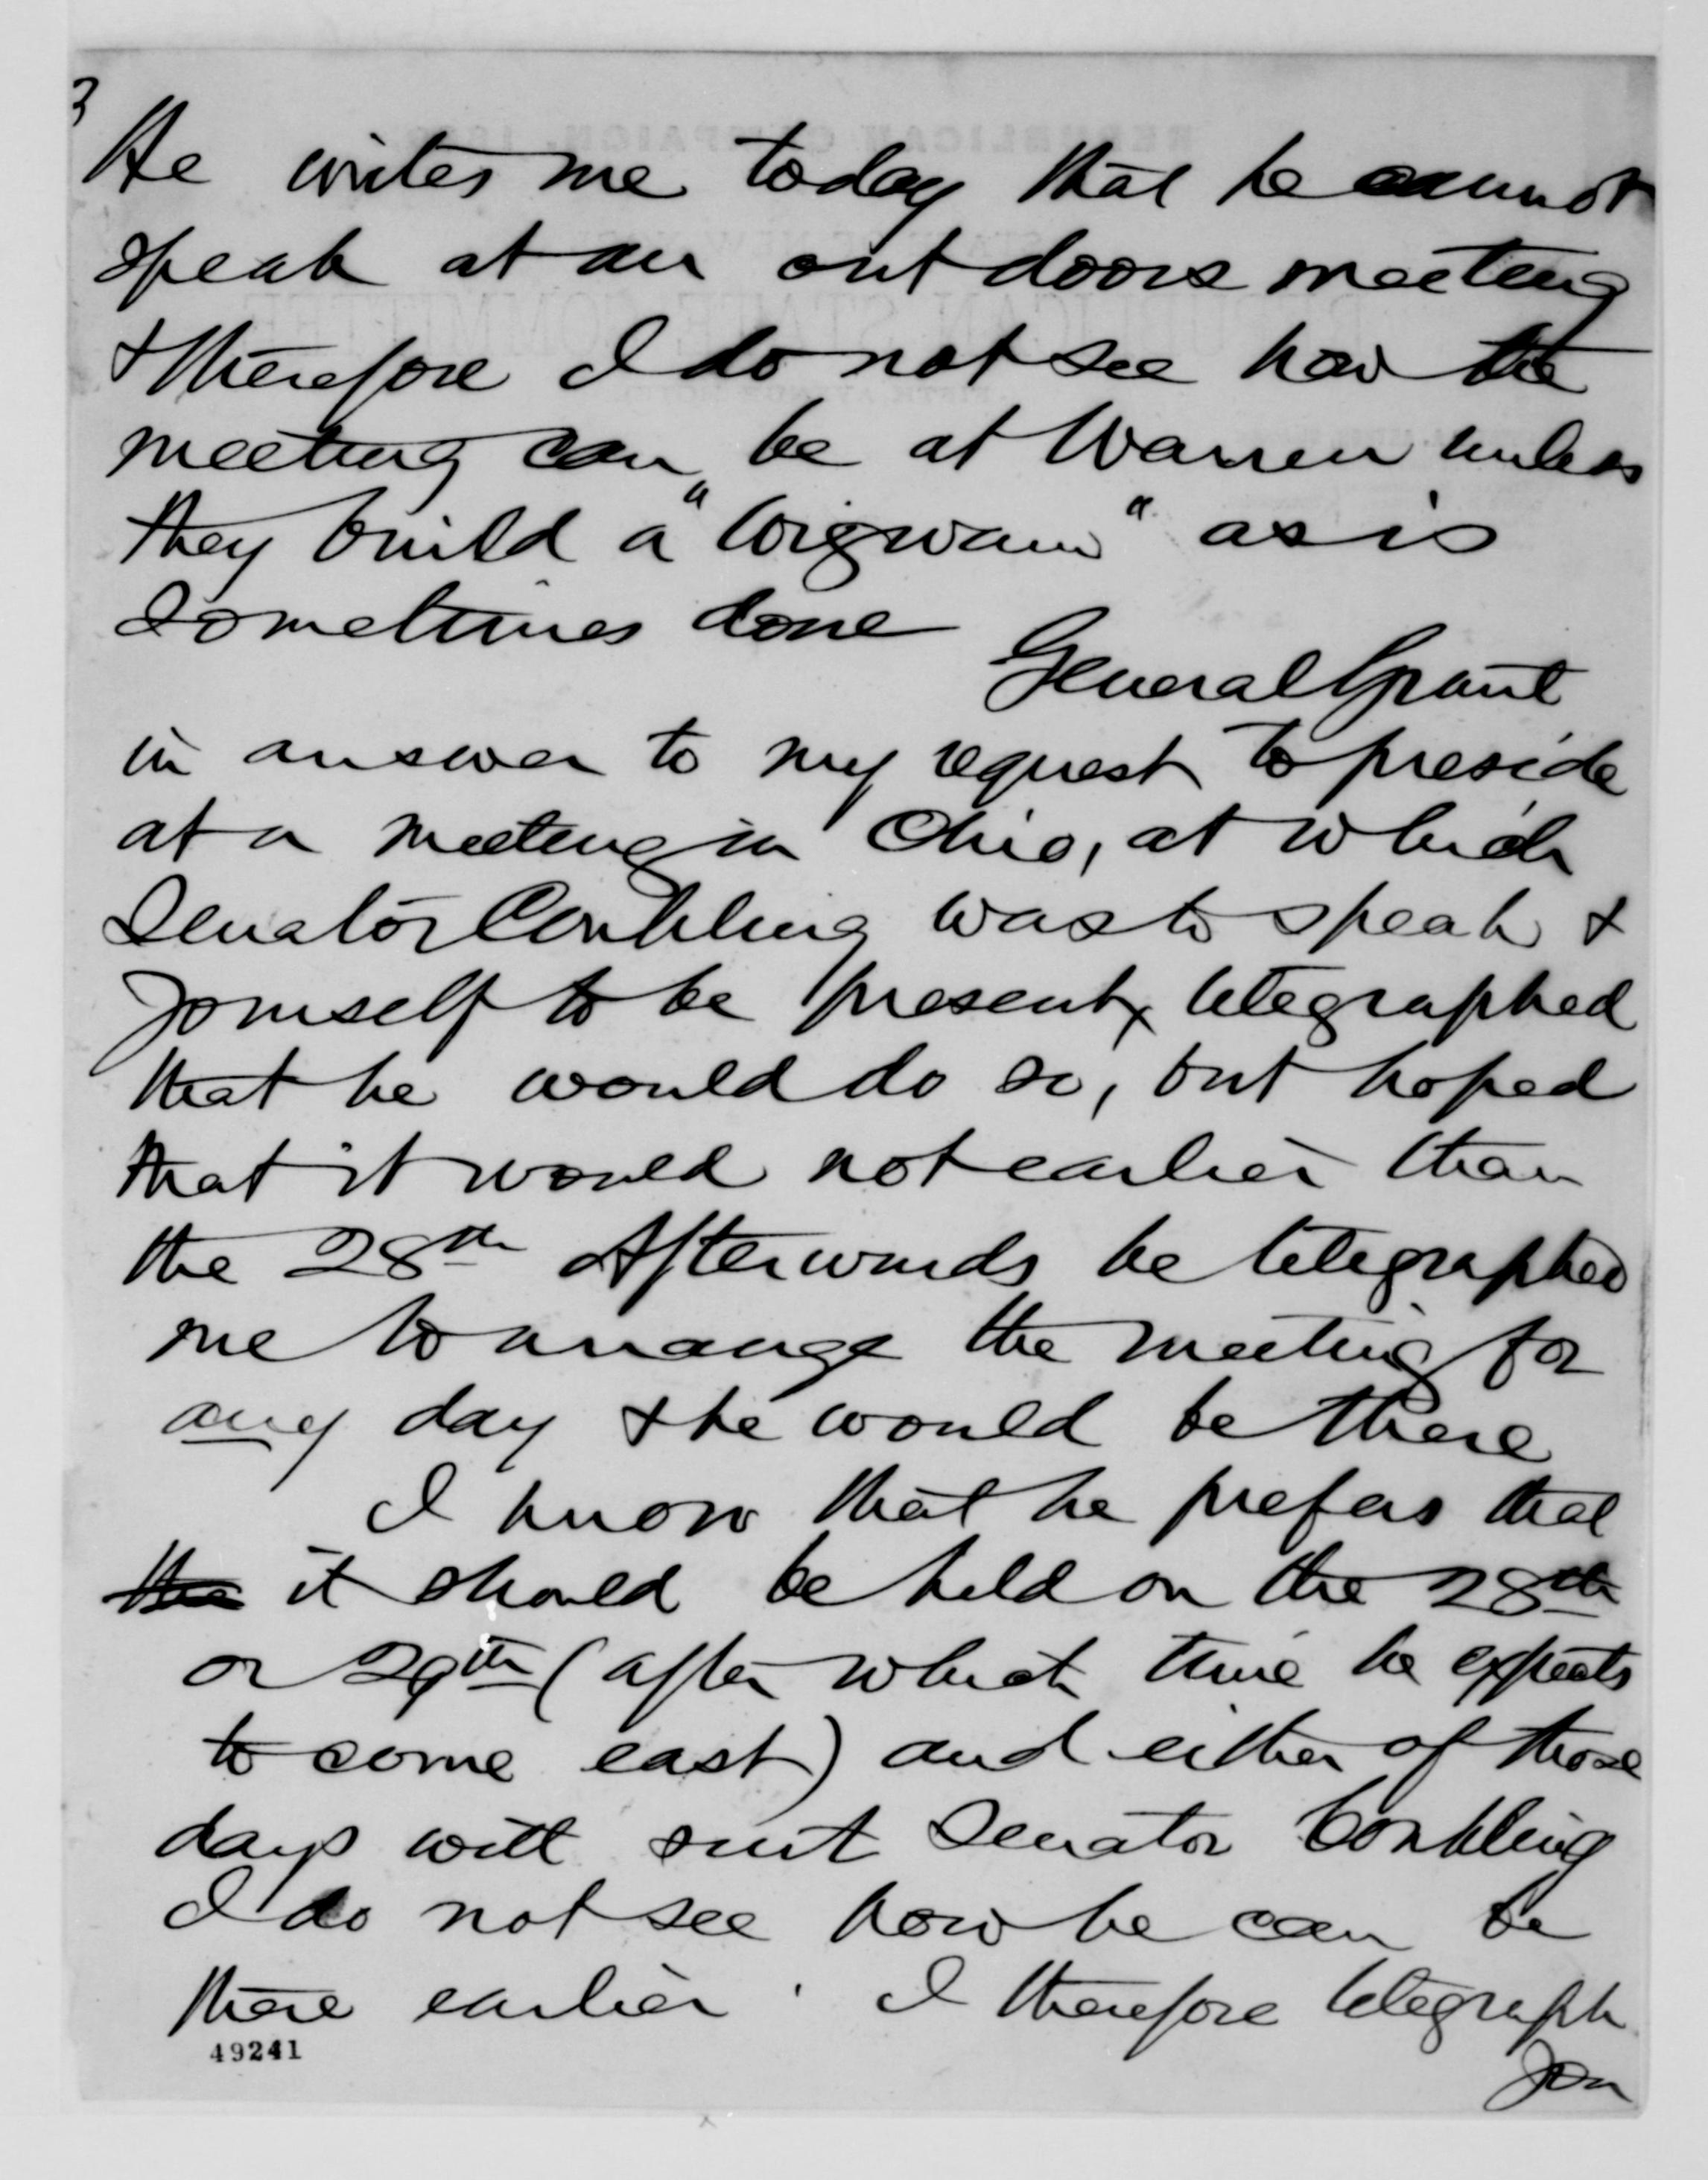 3
He writes me today that he cannot
speak at an out doors meeting
& therefore I do not see how the
meeting can be at Warren unless
they build a "Wigwam" as is
sometimes done
General Grant
in answer to my request to preside
at a meeting in Ohio, at which
Senator Conkling was to speak &
yourself to be present, telegraphed
that he would do so, but hoped
that it would not earlier than
the 28th Afterwards he telegraphed
me to arrange the meeting for
any day & he would be there
I know that he prefers that
the it should be held on the 28th
or 29th (after which time he expects
to come east) and either of those
days will suit Senator Conkling
I do not see how he can be
there earlier. I therefore telegraph
you
49241